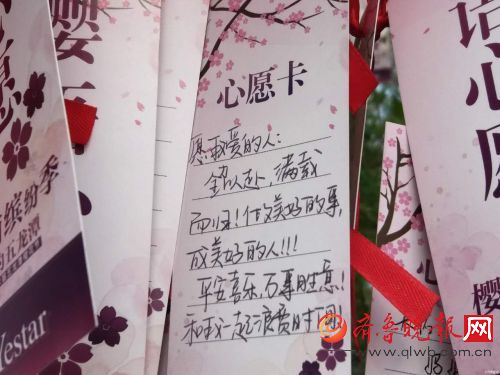 心愿卡
愿我爱的人：
全力以赴，满载
而归！做美好的事，
成美好的人!!!
平安喜乐，万事胜意！
和我一起浪费时间！
缤纷季
五龙潭
Yestar
语心愿
心
樱
齐鲁晚报网
www.qlwb.com.cn